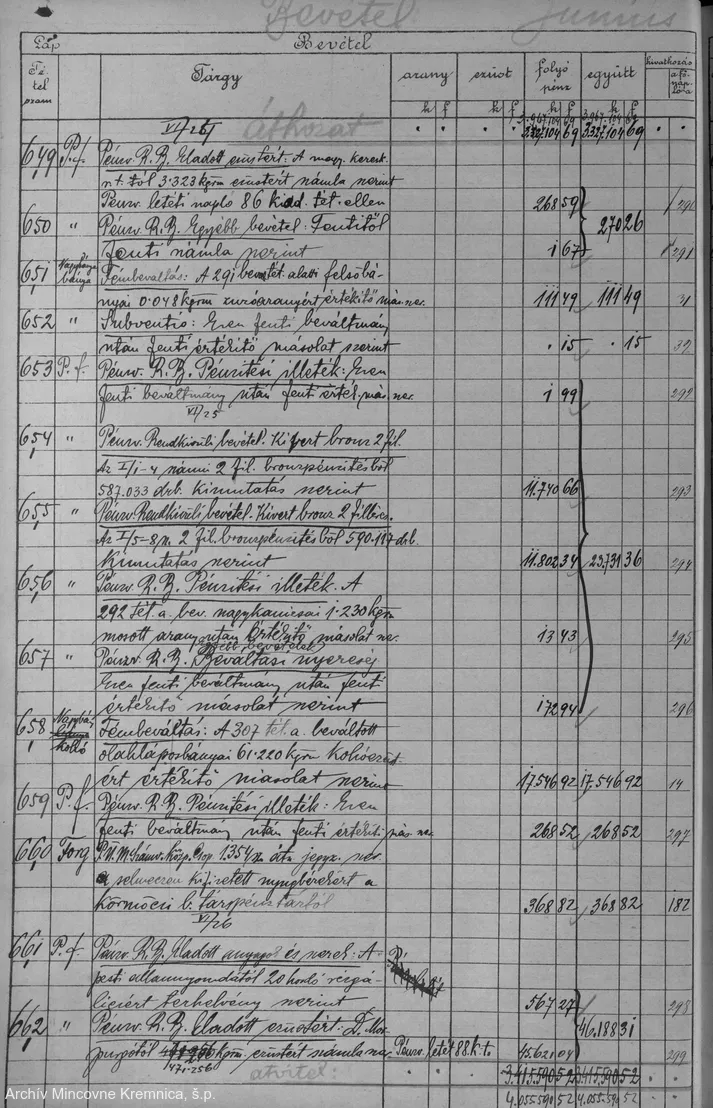 Bevétel Junius
Lap Bevétel
Tétel szám Tárgy arany ezüst folyó pénz együtt hivatkozás a fő-naplóra
k f k f k f k f
VI/26 Áthozat 3.327.104 69 3.327.104 69
649 P.f. Pénzv. R.B. Eladott ezüstért: A magy. keresk.
r.t. től 3.323 kgrm ezüstért számla szerint
Pénzv. letéti napló 86 kiad. tét. ellen 268 59
650 " Pénzv. R.B. Egyébb bevétel: Fentitől 270 26
fenti számla szerint 1 67 291
651 Fémbeváltás: A 291 bev. tét. alatti felsőbá-
nyai 0.048 kgrm értékítő más. sz. 111 49 111 49 31
652 " Subventio: Ezen fenti beváltmány
után fenti értékítő másolat szerint 15 15 32
653 P.f. Pénzv. R.B. Pénzítési illeték: Ezen
fenti beváltmány után fenti érték. más. sz. 1 99 292
VI/25
654 " Pénzv. Rendkívüli bevétel. Kivert bronz 2 fil.
Az I/1-4 számú 2 fil. bronzpénzítésből
587.033 drb. kimutatás szerint 11.740 66 293
655 " Pénzv. Rendkívüli bevétel. Kivert bronz 2 filléres.
Az 2 fil. bronzpénzítésből 590.117 drb.
Kimutatás szerint 11.802 34 23.731 36 294
656 " Pénzv. R.B. Pénzítési illeték. A
292 tét. a. bev. nagykanizsai 1.230 kgrm
mosott arany után értékítő másolat sz. 13 43 295
657 " Pénzv. R.B. Egyébb bevételek Beváltási nyereség
Ezen fenti beváltmány után fenti
értékítő másolat szerint 172 94 296
658 Nagybá. kohó Fémbeváltás: A 307 tét. a. beváltott
oláhláposbányai 61.220 kgrm Kohóezüst-
ért értékítő másolat szerint 17.546 92 17.546 92 14
659 P.f. Pénzv. R.B. Pénzítési illeték: Ezen
fenti beváltmány után fenti értékítő más. sz. 268 52 268 52 297
660 Forg P.Ü.M. Számv. Közp. Csop. 1.354 jegyz. sz.
a selmeczen kifizetett nyugbérekért a
körmöczi b. társpénztártól 368 82 368 82 182
VI/26
661 P.f. Pénzv. R.B. Eladott anyagok és szerek: A
pesti államnyomdától 20 hordó rézgá-
liczért terhelvény szerint 567 27 298
662 " Pénzv. R.B. Eladott ezüstért: D. Mor-
purgótól 471.256 kgrm. ezüstért számla sz. Pénzv. letét 88. k.t. 45.621 04 46.188 31 299
471.256
átvitel: 3.415.590 52 3.415.590 52
4.055.590 52 4.055.590 52
Archív Mincovne Kremnica, š.p.